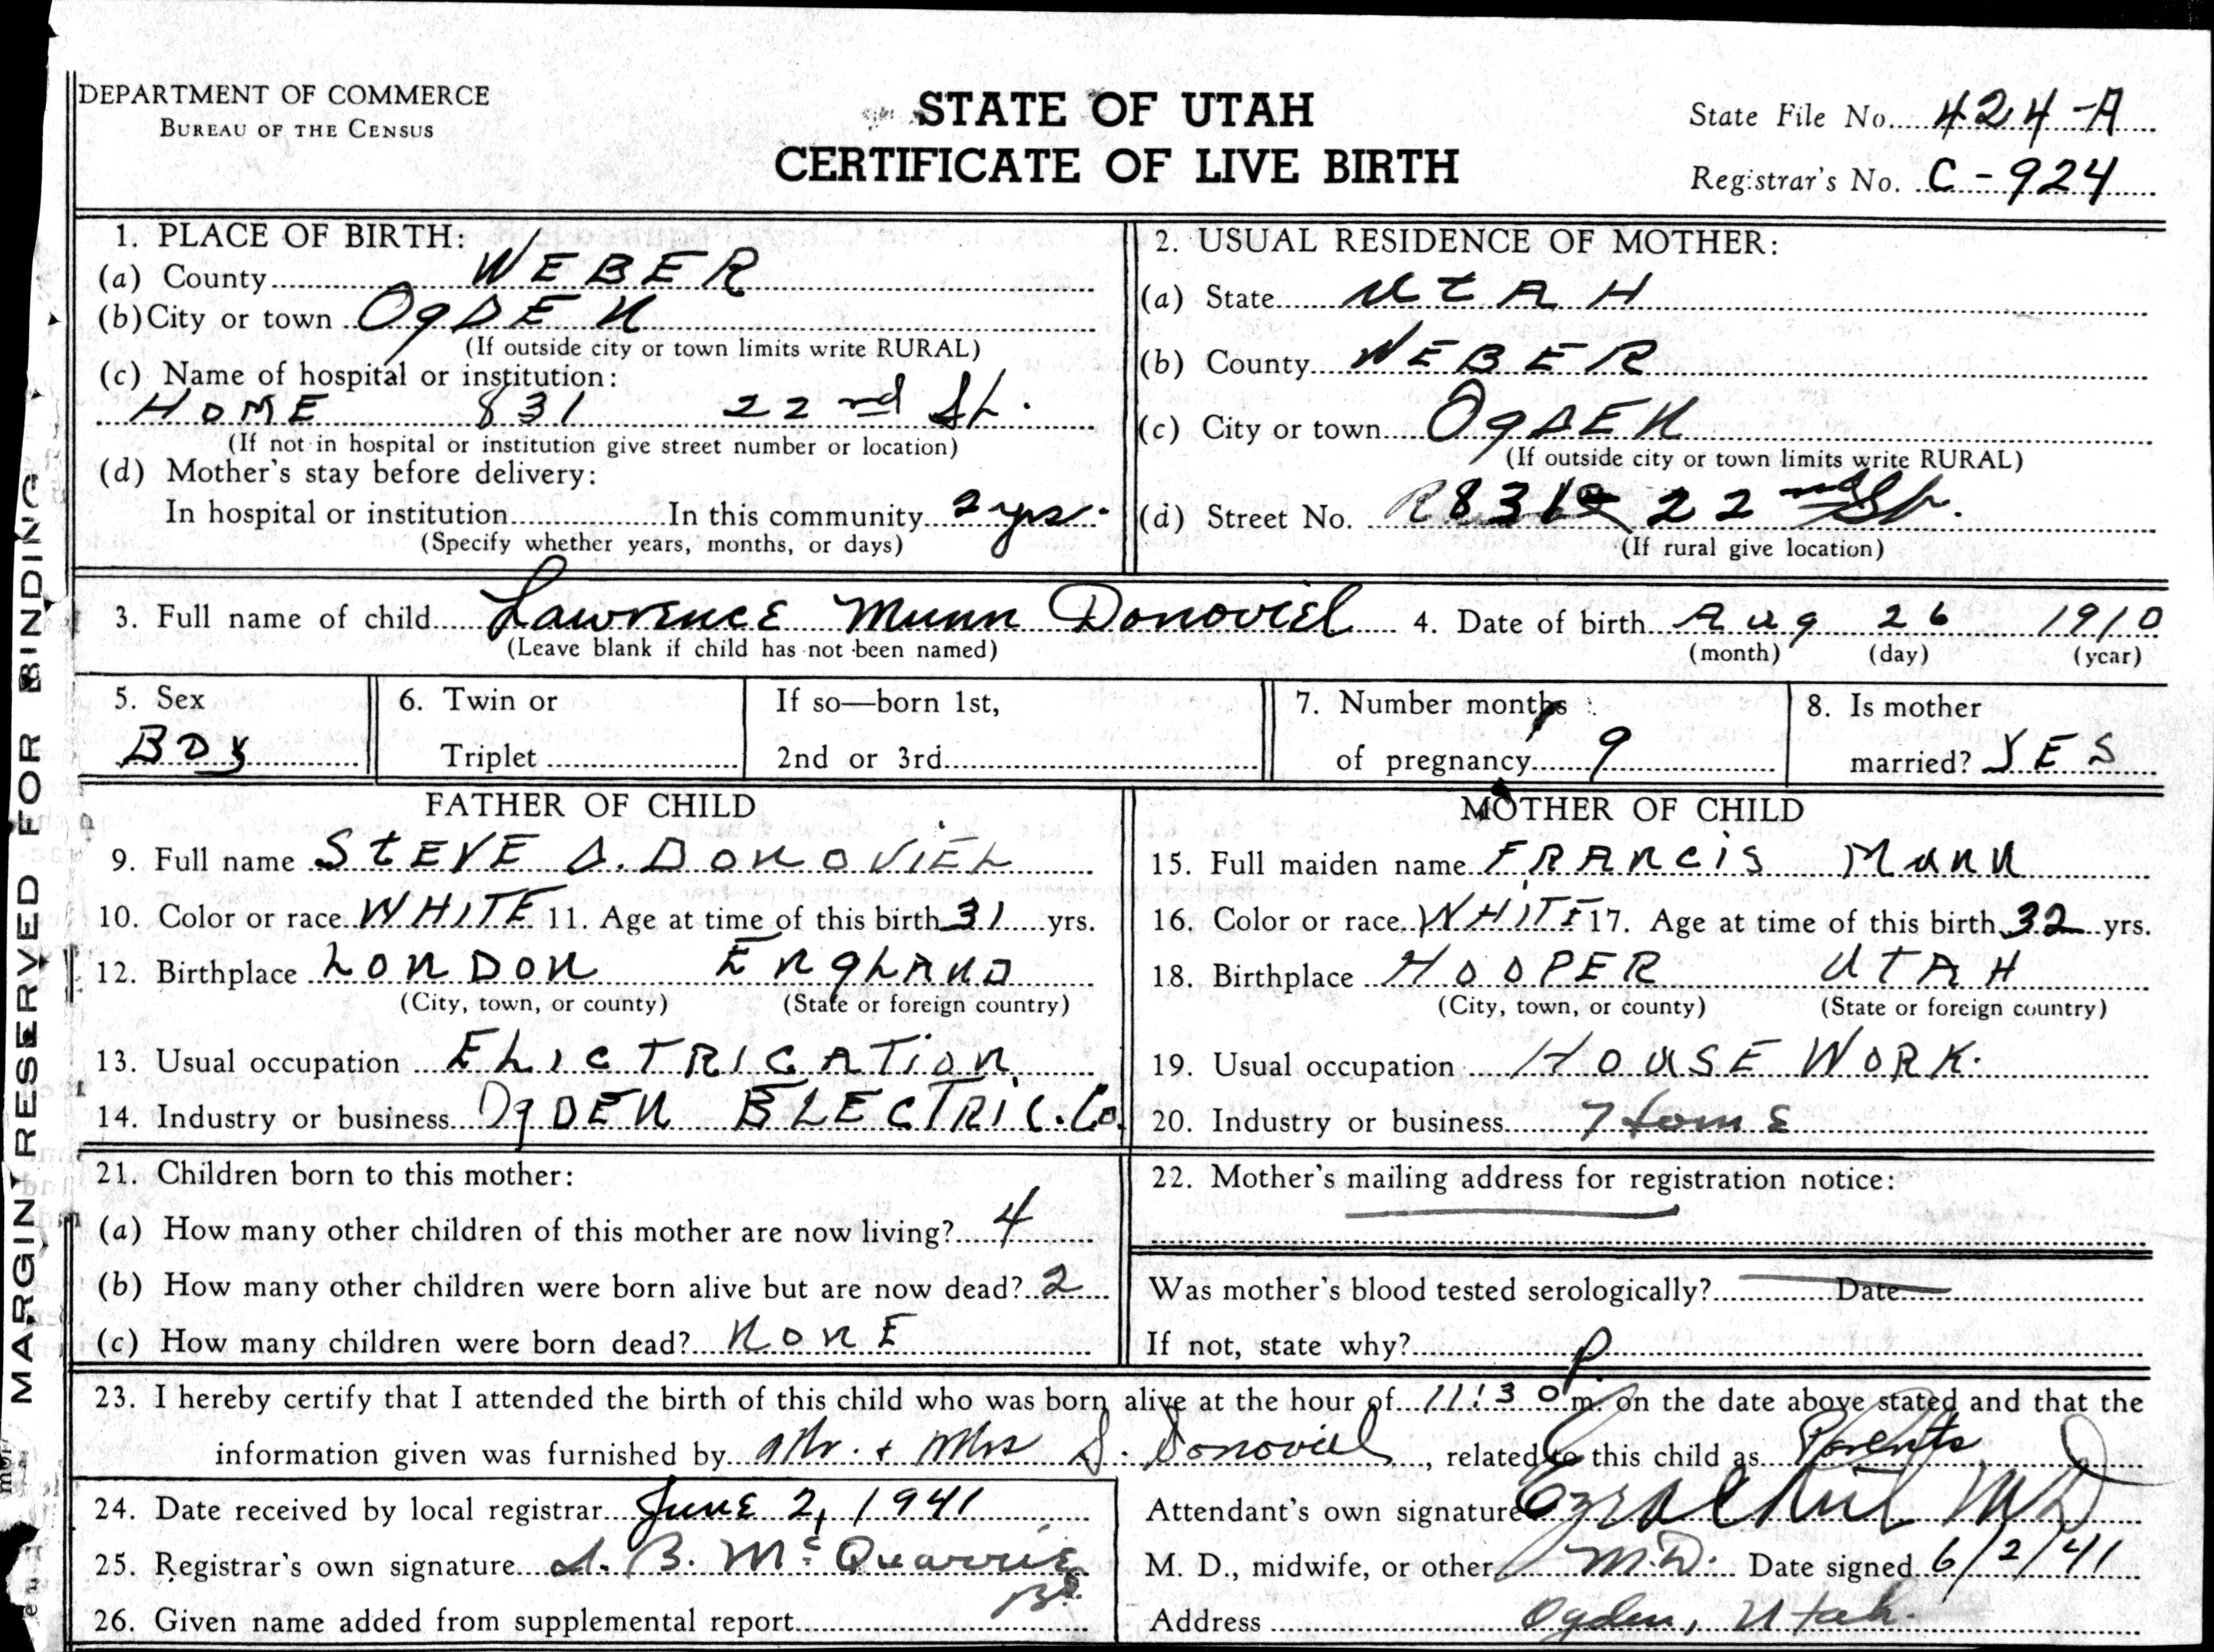 DEPARTMENT OF COMMERCE
BUREAU OF THE CENSUS
STATE OF UTAH
CERTIFICATE OF LIVE BIRTH
State File No. 424-A
Registrar's No. C-924
MARGIN RESERVED FOR BINDING
1. PLACE OF BIRTH:
(a) County WEBER
(b) City or town OgDEN
(If outside city or town limits write RURAL)
(c) Name of hospital or institution:
HOME 831 22nd St.
(If not in hospital or institution give street number or location)
(d) Mother's stay before delivery:
In hospital or institution In this community 2 yrs.
(Specify whether years, months, or days)
2. USUAL RESIDENCE OF MOTHER:
(a) State UtAH
(b) County WEBER
(c) City or town OgDEN
(If outside city or town limits write RURAL)
(d) Street No. 831 22nd St.
(If rural give location)
3. Full name of child Lawrence Munn Donoviel 4. Date of birth Aug 26 1910
(Leave blank if child has not been named) (month) (day) (year)
5. Sex BOy
6. Twin or
Triplet
If so—born 1st,
2nd or 3rd
7. Number months
of pregnancy 9
8. Is mother
married? YES
FATHER OF CHILD
9. Full name StEVE D. DONOVIEL
10. Color or race WHITE 11. Age at time of this birth 31 yrs.
12. Birthplace LONDON ENgLAND
(City, town, or county) (State or foreign country)
13. Usual occupation ELICTRICATION
14. Industry or business OgDEN ELECTRIC. Co.
MOTHER OF CHILD
15. Full maiden name FRANCIS MUNN
16. Color or race WHITE 17. Age at time of this birth 32 yrs.
18. Birthplace HOOPER UTAH
(City, town, or county) (State or foreign country)
19. Usual occupation HOUSE WORK.
20. Industry or business Home
21. Children born to this mother:
(a) How many other children of this mother are now living? 4
(b) How many other children were born alive but are now dead? 2
(c) How many children were born dead? NONE
22. Mother's mailing address for registration notice:
Was mother's blood tested serologically? Date
If not, state why?
23. I hereby certify that I attended the birth of this child who was born alive at the hour of 11:30 P m. on the date above stated and that the
information given was furnished by Mr. + Mrs D. Donoviel, related to this child as Parents
24. Date received by local registrar June 2, 1941
25. Registrar's own signature B. McQuarrie
26. Given name added from supplemental report
Attendant's own signature MD
M. D., midwife, or other M.D. Date signed 6/2/41
Address Ogden, Utah.